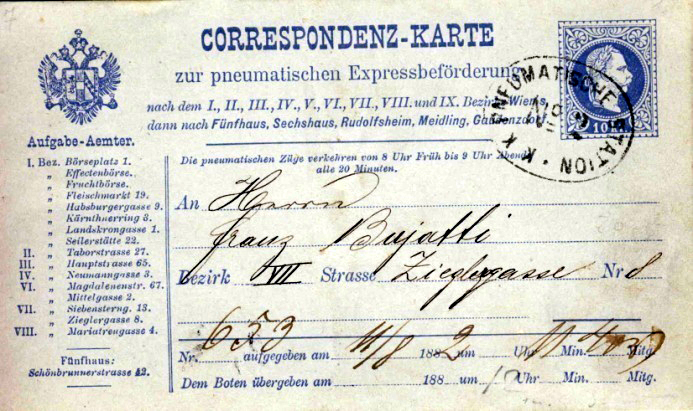 CORRESPONDENZ-KARTE
zur pneumatischen Expressbeförderung
nach dem I., II., III., IV., V., VI., VII., VIII. und IX. Bezirk Wiens,
dann nach Fünfhaus, Sechshaus, Rudolfsheim, Meidling, Gaudenzdorf.
Die pneumatischen Züge verkehren von 8 Uhr Früh bis 9 Uhr Abends
alle 20 Minuten.
10 KR.
K.K. PNEUMATISCHE STATION
Aufgabe-Aemter.
I. Bez. Börseplatz 1.
„ Effectenbörse.
„ Fruchtbörse.
„ Fleischmarkt 19.
„ Habsburgergasse 9.
„ Kärnthnerring 3.
„ Landskrongasse 1.
„ Seilerstätte 22.
II. „ Taborstrasse 27.
III. „ Hauptstrasse 65.
IV. „ Neumanngasse 3.
VI. „ Magdalenenstr. 67.
„ Mittelgasse 2.
VII. „ Siebensterng. 13.
„ Zieglergasse 8.
VIII. „ Mariatreugasse 4.
Fünfhaus:
Schönbrunnerstrasse 42.
An Herrn
Franz Bujatti
Bezirk VII Strasse Zieglergasse Nr 8
Nr. 653 aufgegeben am 11/8 1882 um 11 Uhr Min. Mitg.
Dem Boten übergeben am 188 um Uhr Min. Mitg.